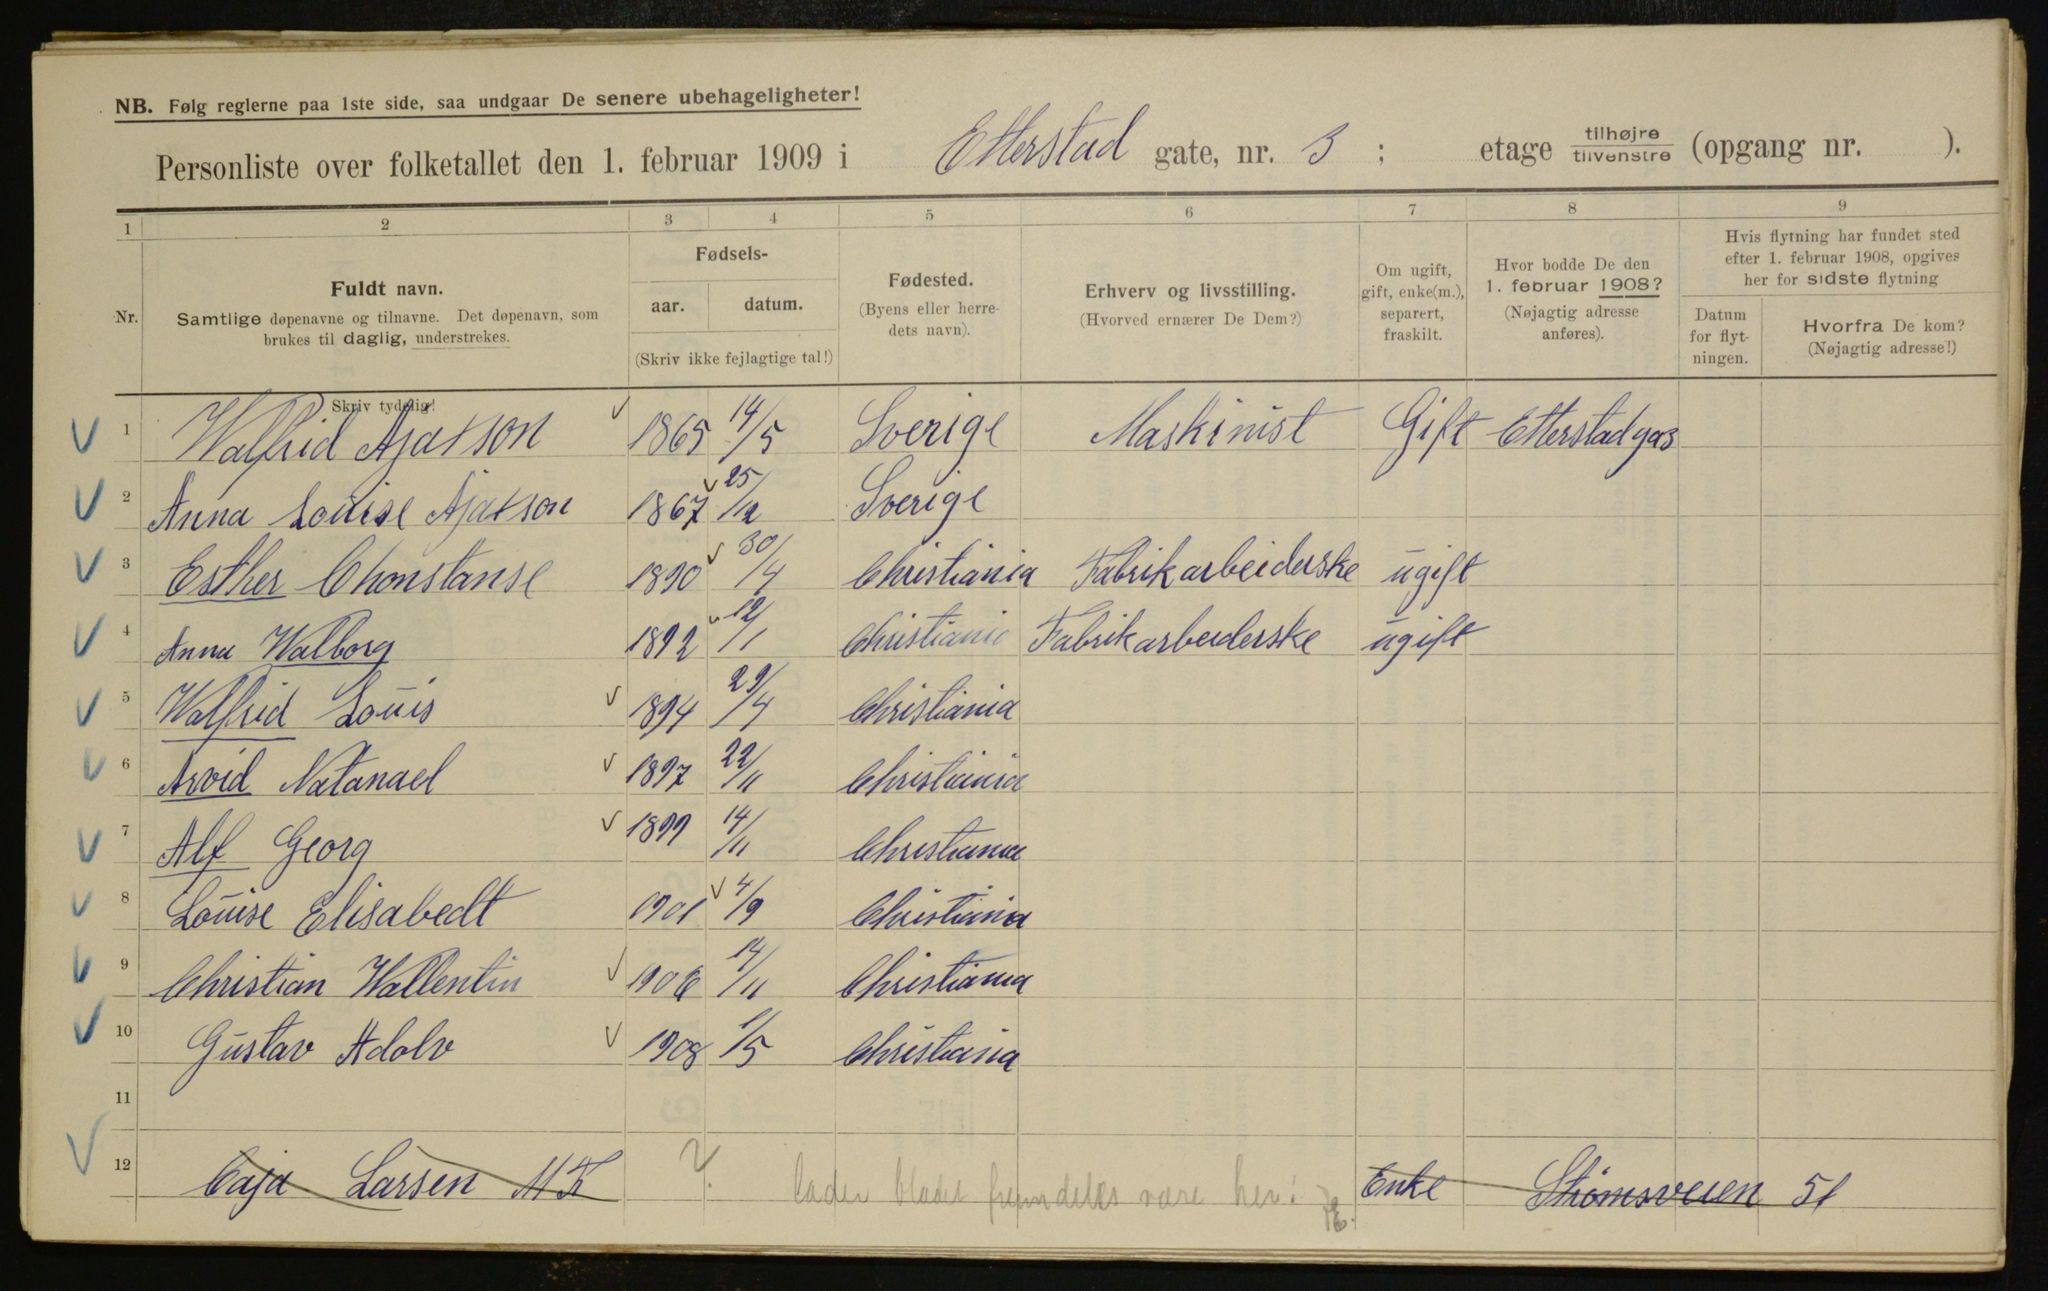 NB. Følg reglerne paa 1ste side, saa undgaar De senere ubehageligheter!
Personliste over folketallet den 1. februar 1909 i Etterstad gate, nr. 3; etage tilhøjre tilvenstre (opgang nr. ).
1 2 3 4 5 6 7 8 9
Nr.
Fuldt navn.
Samtlige døpenavne og tilnavne. Det døpenavn, som
brukes til daglig, understrekes.
Skriv tydelig!
Fødsels-
aar. datum.
(Skriv ikke fejlagtige tal!)
Fødested.
(Byens eller herre-
dets navn).
Erhverv og livsstilling.
(Hvorved ernærer De Dem?)
Om ugift,
gift, enke(m.),
separert,
fraskilt.
Hvor bodde De den
1. februar 1908?
(Nøjagtig adresse
anføres).
Hvis flytning har fundet sted
efter 1. februar 1908, opgives
her for sidste flytning
Datum
for flyt-
ningen.
Hvorfra De kom?
(Nøjagtig adresse!)
1 Walfrid Ajaxson 1865 14/5 Sverige Maskinist Gift Etterstadgas
2 Anna Louise Ajaxson 1867 25/12 Sverige
3 Esther Chonstanse 1890 30/4 Christiania Fabrikarbeiderske ugift
4 Anna Walborg 1892 12/1 Christiania Fabrikarbeiderske ugift
5 Walfrid Louis 1894 29/4 Christiania
6 Arvid Natanael 1897 22/11 Christiania
7 Alf Georg 1899 14/11 Christiania
8 Louise Elisabedt 1901 4/9 Christiania
9 Christian Wallentin 1906 14/11 Christiania
10 Gustav Adolv 1908 1/5 Christiania
11
12 Caja Larsen ? lader bladet fremdeles være her! Enke Strømsveien 51